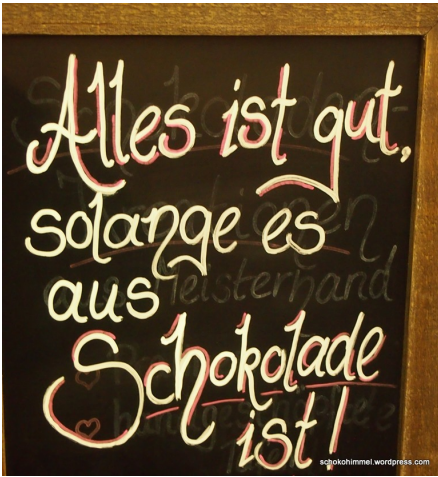 Alles ist gut,
solange es
aus Meisterhand
Schokolade
ist!
schokohimmel.wordpress.com